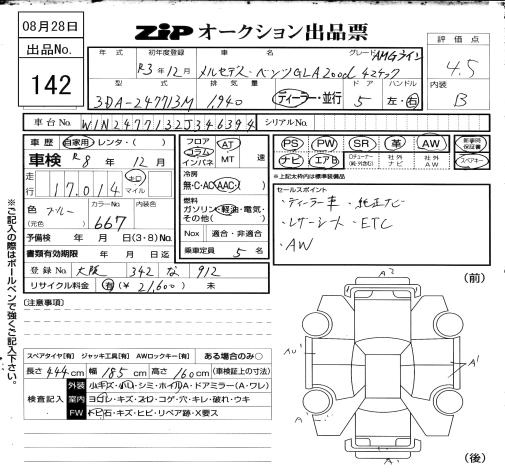 08月28日
出品No.
142
ZiP オークション出品票
評価点
4.5
内装
B
年式 初年度登録 車名 グレード AMGライン
R3年12月 メルセデス・ベンツGLA200d 4マチック
型式 排気量 ドア ハンドル
3DA-247713M 1,940 ディーラー・並行 5 左・右
車台No. W1N2477132J346394 シリアルNo.
車歴 自家用 レンタ・( )
車検 R8年12月
走行 17,014 キロ マイル
色 ブルー カラーNo. 内装色
(元色) 667
予備検 年 月 日(3・8)No.
書類有効期限 年 月 日迄
登録No. 大阪 342 な 912
リサイクル料金 有(¥21,600) 未
フロア コラム インパネ AT MT 速
冷房
無・C・AC・AAC・( )
燃料
ガソリン・軽油・電気・
その他( )
Nox 適合・非適合
乗車定員 5 名
PS PW SR 革 AW 新車時保証書
ナビ エアB Dチューナー(純・外含む) 社外ナビ 社外AW スペアキー
※上記太枠内は標準装備品
セールスポイント
・ディーラー車 ・純正ナビ
・レザーシート ・ETC
・AW
※ご記入の際はボールペンで強くご記入下さい。
[注意事項]
(前)
A2
A'
A'
(後)
スペアタイヤ[有] ジャッキ工具[有] AWロックキー[有] ある場合のみ○
長さ 444 cm 幅 185 cm 高さ 160 cm (車検証上の寸法)
検査記入
外装 小キズ・小凹・シミ・ホイルA・ドアミラー(A・ワレ)
室内 ヨゴレ・キズ・スレ・コゲ・穴・キレ・破れ・ウキ
FW トビ石・キズ・ヒビ・リペア跡・X要ス